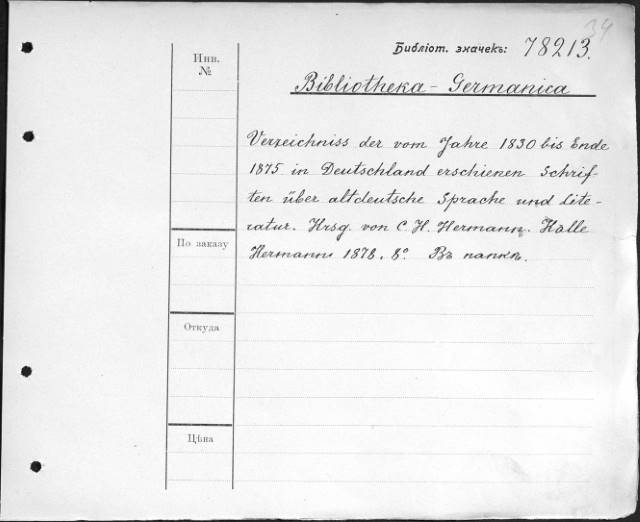 34
Библіот. значекъ: 78213.
Инв.
№
Bibliotheka - Germanica
Verzeichniss der vom Jahre 1830 bis Ende
1875 in Deutschland erschienen Schrif-
ten über altdeutsche Sprache und Lite-
ratur. Hrsg. von C. H. Hermann. Halle
Hermann 1878. 8° Въ папкѣ.
По заказу
Откуда
Цѣна